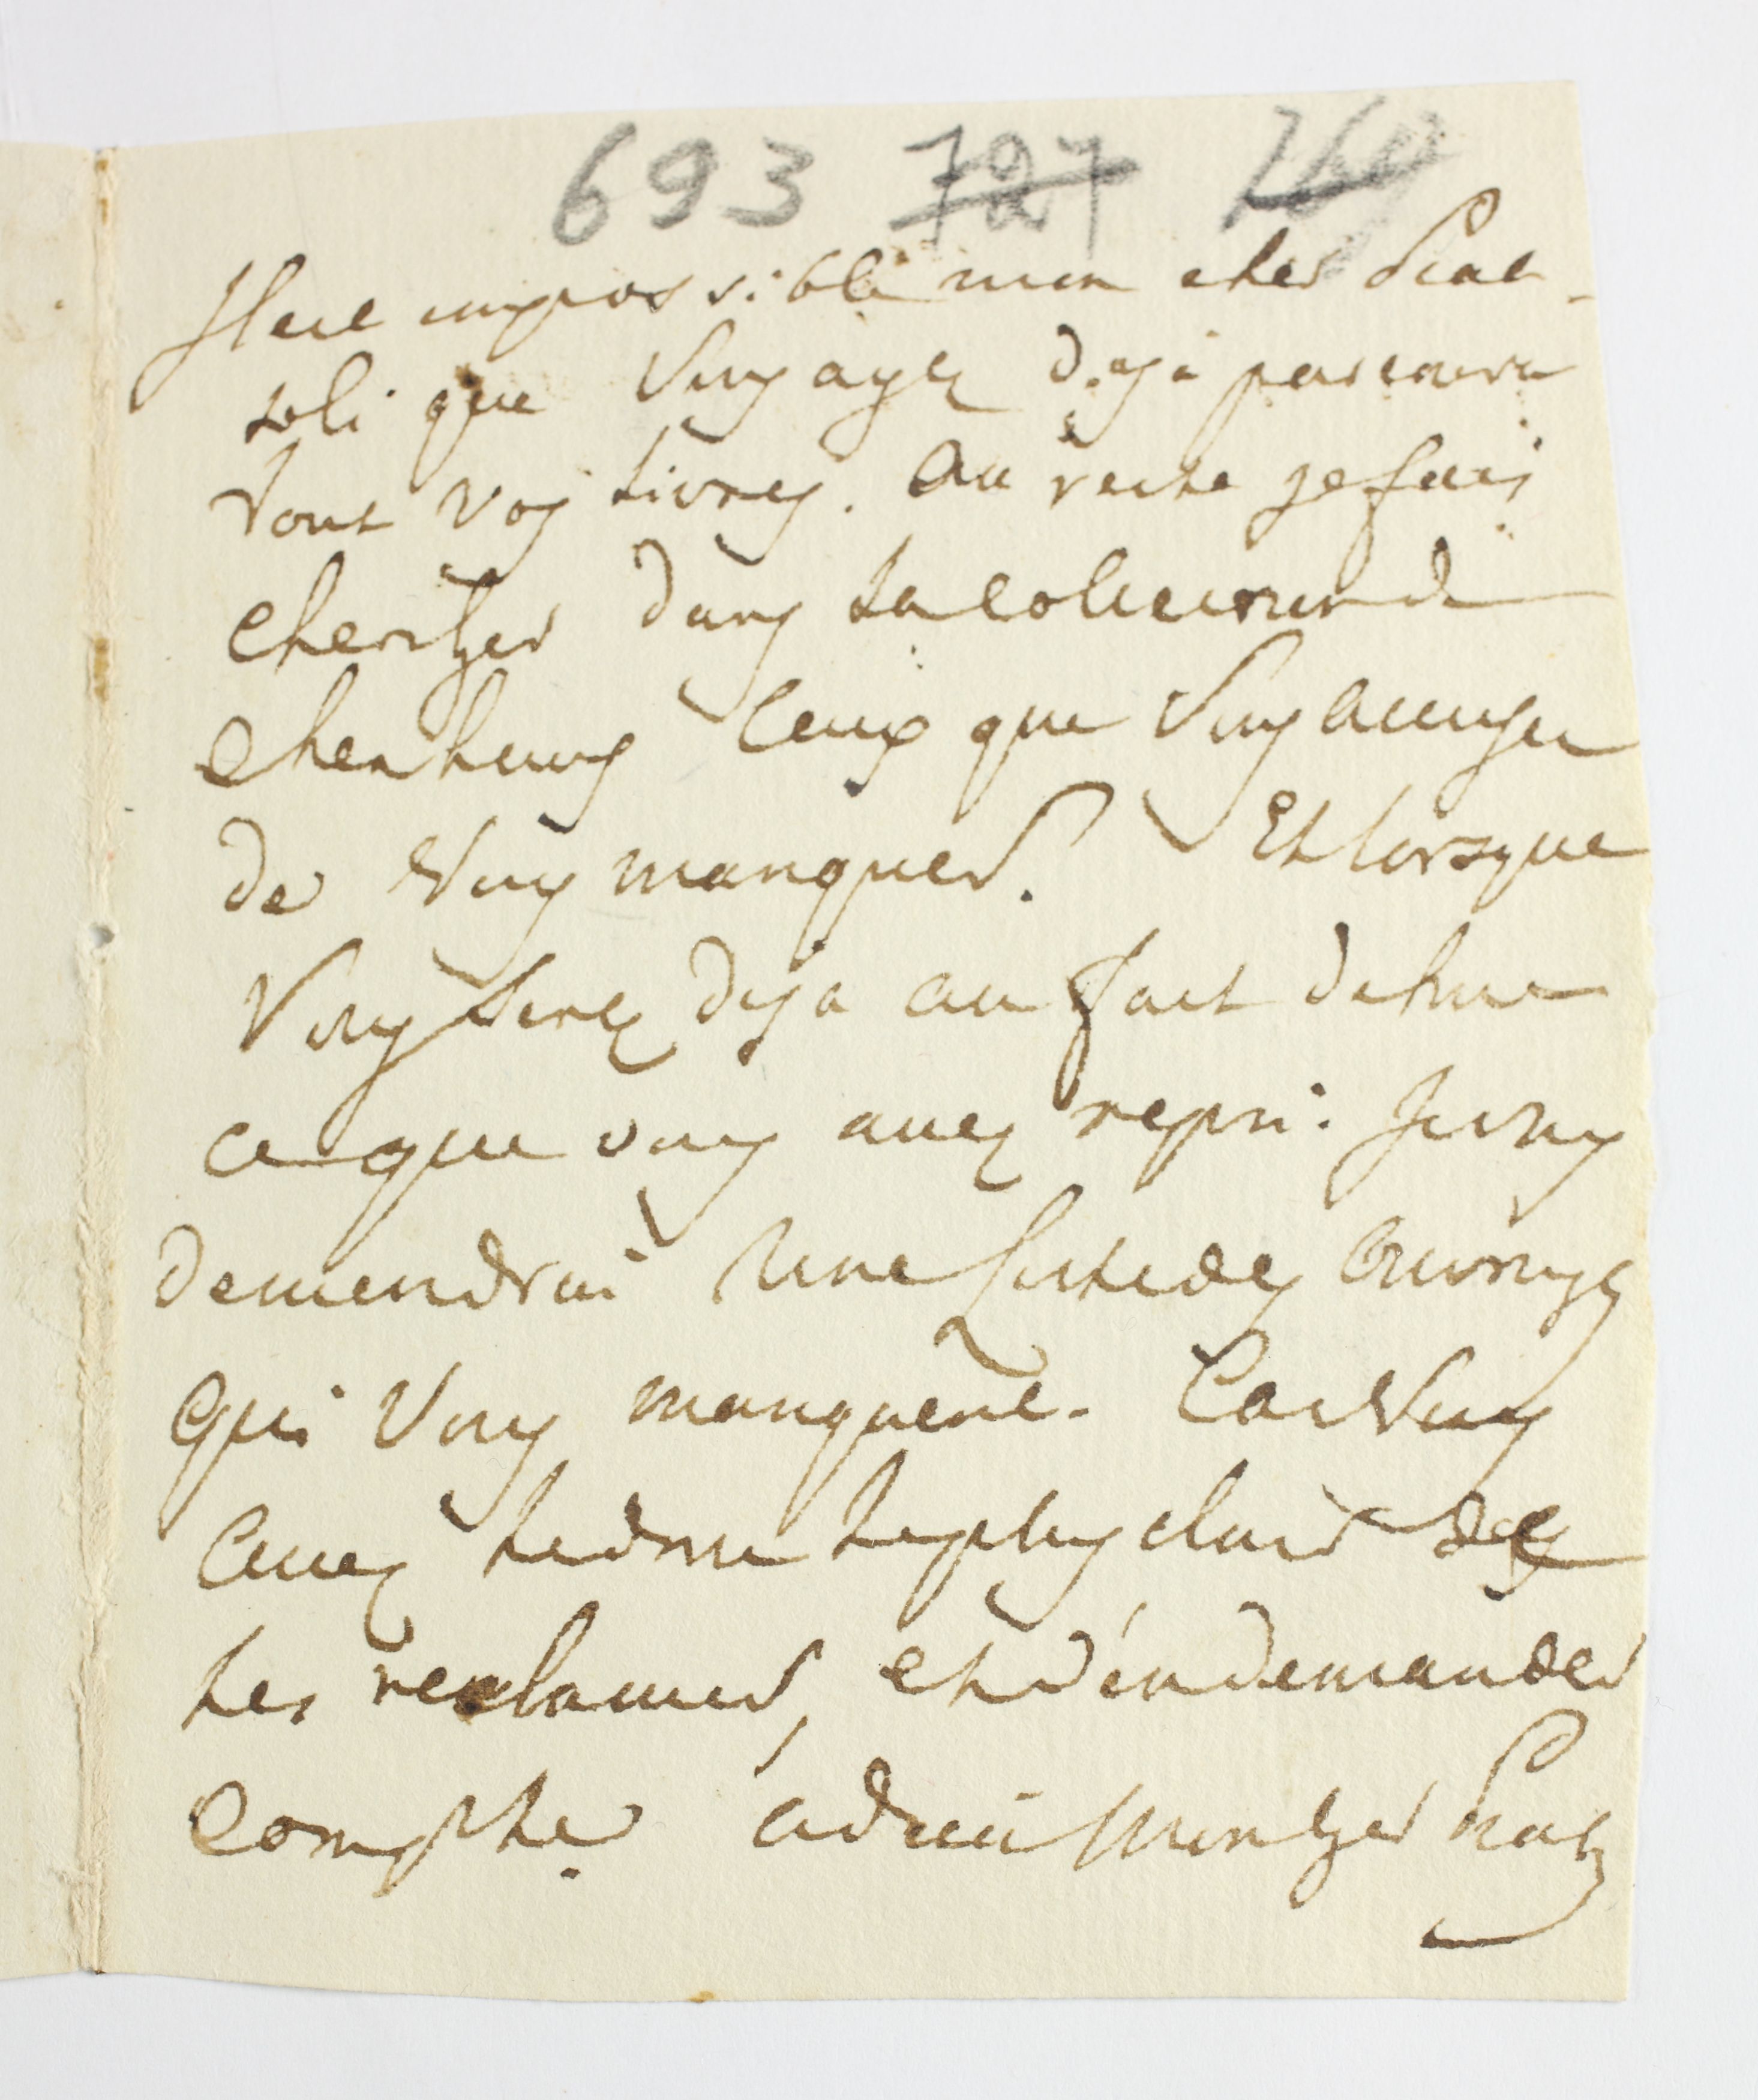 693 727 760
Il est impossible mon cher Piat-
toli que Vous ayez deja parcouru
tout vos Livres. Au reste je fais
chercher dans la collection de
Chenteny Ceux que Vous accuser
de Vous manquer. Et lorsque
Vous serez deja au fait de tout
ce que vous avez repri. Je vous
demendrai Une Liste des Ouvrages
qui Vous manquent. Car Vous
Avez le droit le plus clair de
les reclamer, et d'en demander
compte adieu Mon cher Piat